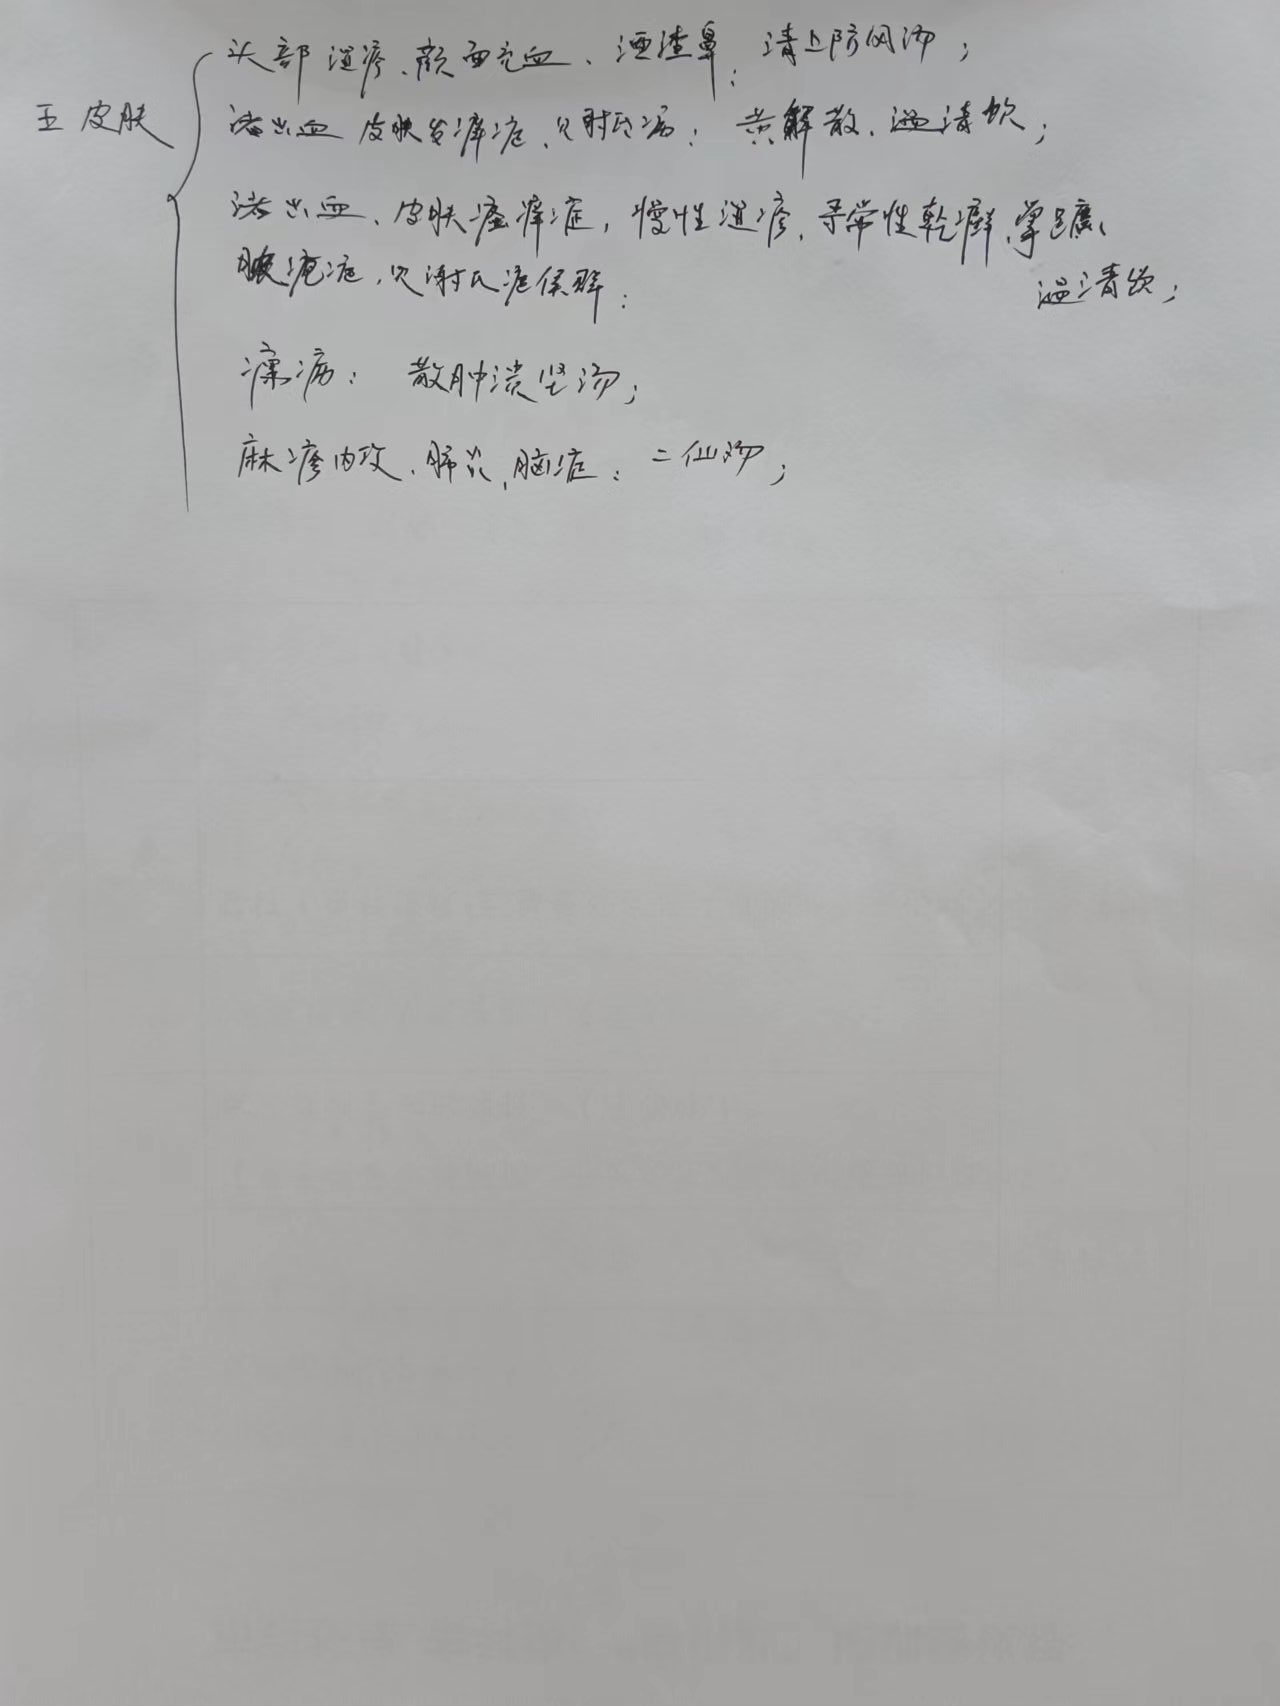 头部湿疹、颜面充血、酒渣鼻：清上防风汤；
五 皮肤
诸出血 皮肤发痒症、贝时氏病：黄解散、温清饮；
诸出血、皮肤瘙痒症，慢性湿疹，寻常性乾癣、掌蹠
脓疱症，贝谢氏症候群： 温清饮；
瘰疬：散肿溃坚汤；
麻疹内攻、肺炎、脑症：二仙汤；